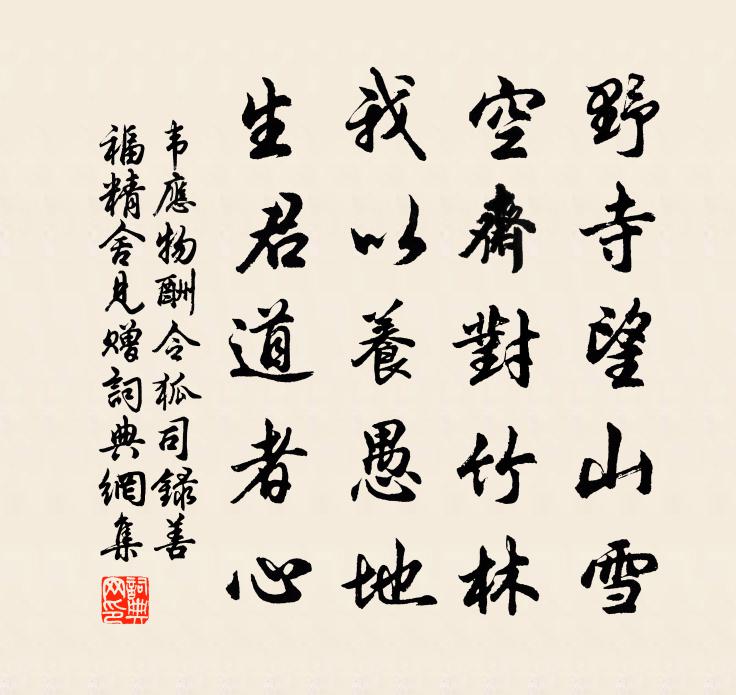 野寺望山雪
空齋對竹林
我以養愚地
生君道者心
韦應物酬令狐司錄善
福精舍見贈詞典網集
詞典网印